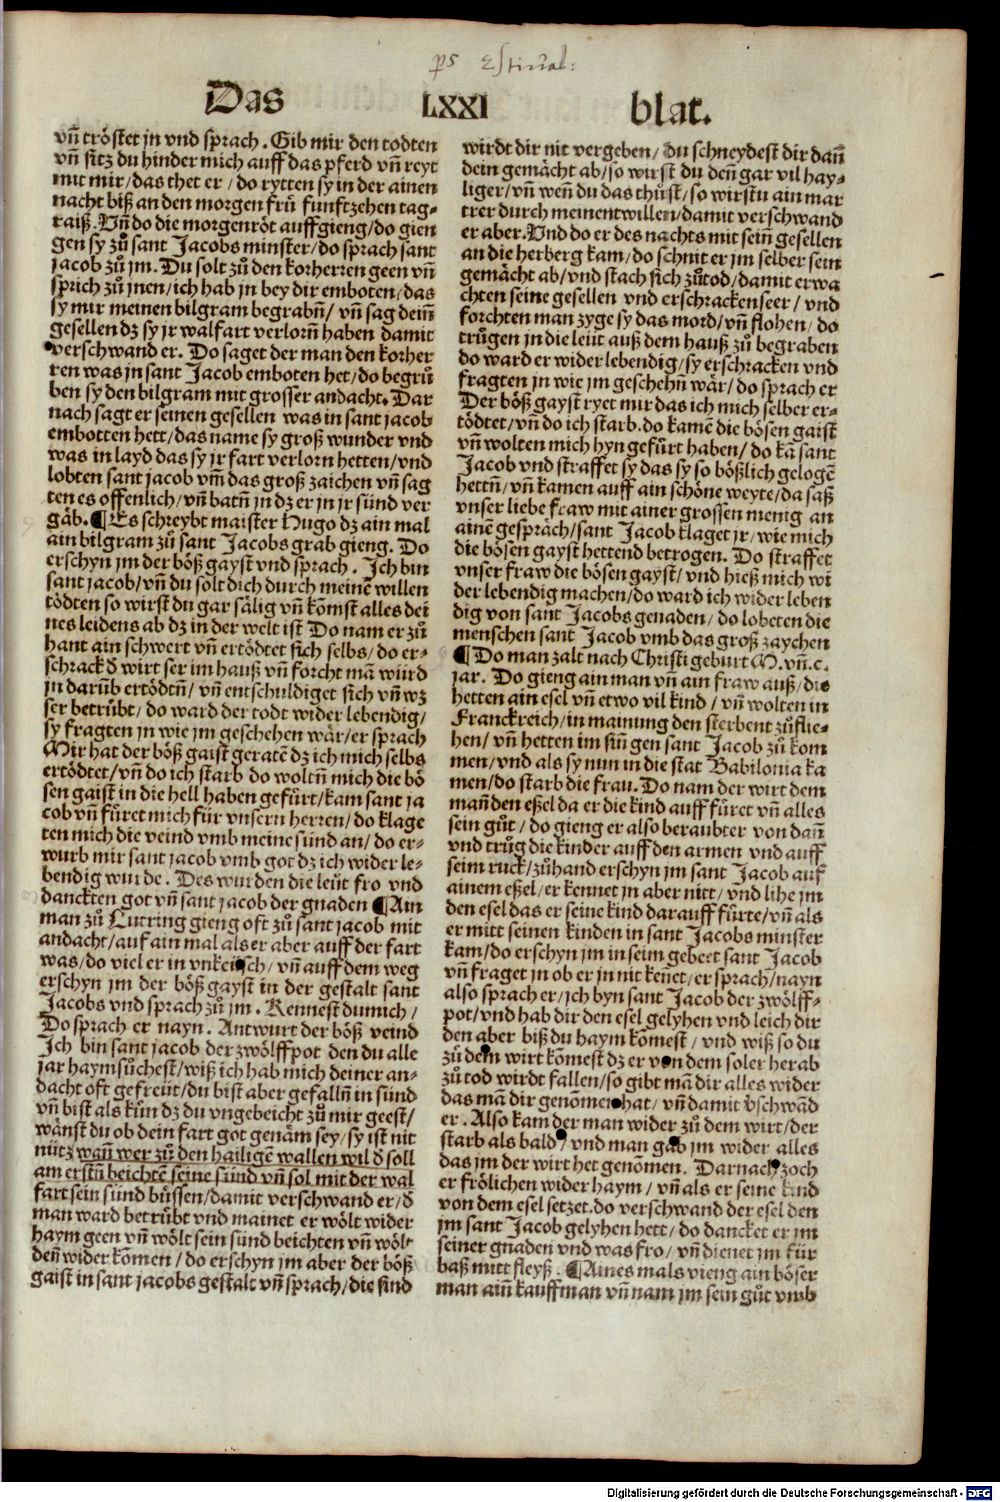 Das LXXI blat.
vñ tröstet jn vnd sprach. Gib mir den todten
vñ sitz du hinder mich auff das pferd vñ reyt
mit mir/das thet er/do rytten sy in der ainen
nacht biß an den morgen frů funftzehen tag-
raiß. Vñ do die morgenröt auffgieng/do gien
gen sy zů sant Jacobs minster/do sprach sant
jacob zů jm. Du solt zů den korherren geen vñ
sprich zů jnen/ich hab jn bey dir emboten/das
sy mir meinen bilgram begrabñ/vñ sag deiñ
gesellen dz sy jr walfart verlorñ haben damit
verschwand er. Do saget der man den korher
ren was jn sant Jacob emboten het/do begrů
ben sy den bilgram mit grosser andacht. Dar
nach sagt er seinen gesellen was in sant jacob
embotten hett/das name sy groß wunder vnd
was in layd das sy jr fart verlorn hetten/vnd
lobten sant jacob vm̃ das groß zaichen vñ sag
ten es offenlich/vñ batñ jn dz er jn jr sünd ver
gäb. ¶Es schreybt maister Hugo dz ain mal
ain bilgram zů sant Jacobs grab gieng. Do
erschyn jm der böß gayst vnd sprach. Ich bin
sant jacob/vñ du solt dich durch meinē willen
tödten so wirst du gar sälig vñ kömst alles dei
nes leidens ab dz in der welt ist Do nam er zů
hant ain schwert vñ ertödtet sich selbs/do er-
schrack d̄ wirt ser im hauß vñ forcht mā würd
jn darūb ertödtñ/vñ entschuldiget sich vñ wz
ser betrůbt/do ward der todt wider lebendig/
sy fragten jn wie jm geschehen wär/er sprach
Mir hat der böß gaist geratē dz ich mich selbs
ertödtet/vñ do ich starb do woltñ mich die bö
sen gaist in die hell haben gefürt/kam sant ja
cob vñ füret mich für vnsern herren/do klage
ten mich die veind vmb meine sünd an/do er-
wurb mir sant jacob vmb got dz ich wider le-
bendig wurde. Des wurden die leüt fro vnd
danckten got vñ sant jacob der gnaden ¶Ain
man zů Lutring gieng oft zů sant jacob mit
andacht/auf ain mal als er aber auff der fart
was/do viel er in vnkeüsch/vñ auff dem weg
erschyn jm der böß gayst in der gestalt sant
Jacobs vnd sprach zů jm. Kennest du mich/
Do sprach er nayn. Antwurt der böß veind
Ich bin sant jacob der zwölffpot den du alle
jar haymsůchest/wiß ich hab mich deiner an-
dacht oft gefreüt/du bist aber gefallñ in sünd
vñ bist als kün dz du vngebeicht zů mir geest/
wänst du ob dein fart got genäm sey/sy ist nit
nütz wañ wer zů den hailigē wallen wil d̄ soll
am erstñ beichtē seine sünd vñ sol mit der wal
fart sein sünd büssen/damit verschwand er/d̄
man ward betrůbt vnd mainet er wölt wider
haym geen vñ wölt sein sünd beichten vñ wölt
deñ wider kōmen/do erschyn jm aber der böß
gaist in sant jacobs gestalt vñ sprach/die sind
wirdt dir nit vergeben/du schneydest dir dañ
dein gemächt ab/so wirst du deñ gar vil hay-
liger/vñ weñ du das thüst/so wirstu ain mar
trer durch meinentwillen/damit verschwand
er aber. Vnd do er des nachts mit seiñ gesellen
an die herberg kam/do schnit er jm selber sein
gemächt ab/vnd stach sich zů tod/damit erwa
chten seine gesellen vnd erschracken seer/vnd
forchten man zyge sy das mord/vñ flohen/do
trůgen jn die leüt auß dem hauß zů begraben
do ward er wider lebendig/sy erschracken vnd
fragten jn wie jm geschehñ wär/do sprach er
Der böß gayst ryet mir das ich mich selber er-
tödtet/vñ do ich starb. do kamē die bösen gaist
vñ wolten mich hyn gefürt haben/do kā sant
Jacob vnd straffet sy das sy so bößlich gelogē
hettñ/vñ kamen auff ain schöne weyte/da saß
vnser liebe fraw mit ainer grossen menig an
ainē gespräch/sant Jacob klaget jr/wie mich
die bösen gayst hettend betrogen. Do straffet
vnser fraw die bösen gayst/vnd hieß mich wi
der lebendig machen/do ward ich wider leben
dig von sant Jacobs genaden/do lobeten die
menschen sant Jacob vmb das groß zaychen
¶Do man zalt nach Christi geburt M. vñ. c.
jar. Do gieng ain man vñ ain fraw auß/die
hetten ain esel vñ etwo vil kind/vñ wolten in
Franckreich/in mainung den sterbent zů flie-
hen/vñ hetten im siñ gen sant Jacob zů kom
men/vnd als sy nun in die stat Babilonia ka
men/do starb die frau. Do nam der wirt dem
mañ den eßel da er die kind auff füret vñ alles
sein gůt/do gieng er also beraubter von dañ
vnd trůg die kinder auff den armen vnd auff
seim ruck/zůhand erschyn jm sant Jacob auf
ainem eßel/er kennet jn aber nitt/vnd lihe jm
den esel das er seine kind darauff fürte/vñ als
er mitt seinen kinden in sant Jacobs minster
kam/do erschyn jm in seim gebeet sant Jacob
vñ fraget jn ob er jn nit keñet/er sprach/nayn
also sprach er/ich byn sant Jacob der zwölff-
pot/vnd hab dir den esel gelyhen vnd leich dir
den aber biß du haym kōmest/vnd wiß so du
zů dem wirt kōmest dz er von dem soler herab
zů tod wirdt fallen/so gibt mā dir alles wider
das mā dir genōmen hat/vñ damit v̄schwād
er. Also kam der man wider zů dem wirt/der
starb als bald/vnd man gab jm wider alles
das jm der wirt het genōmen. Darnach zoch
er frölichen wider haym/vñ als er seine kind
von dem esel setzet. do verschwand der esel den
jm sant Jacob gelyhen hett/do dancket er im
seiner gnaden vnd was fro/vñ dienet jm für
baß mitt fleyß. ¶Aines mals vieng ain böser
man aiñ kauffman vñ nam jm sein gůt vmb
Digitalisierung gefördert durch die Deutsche Forschungsgemeinschaft - DFG